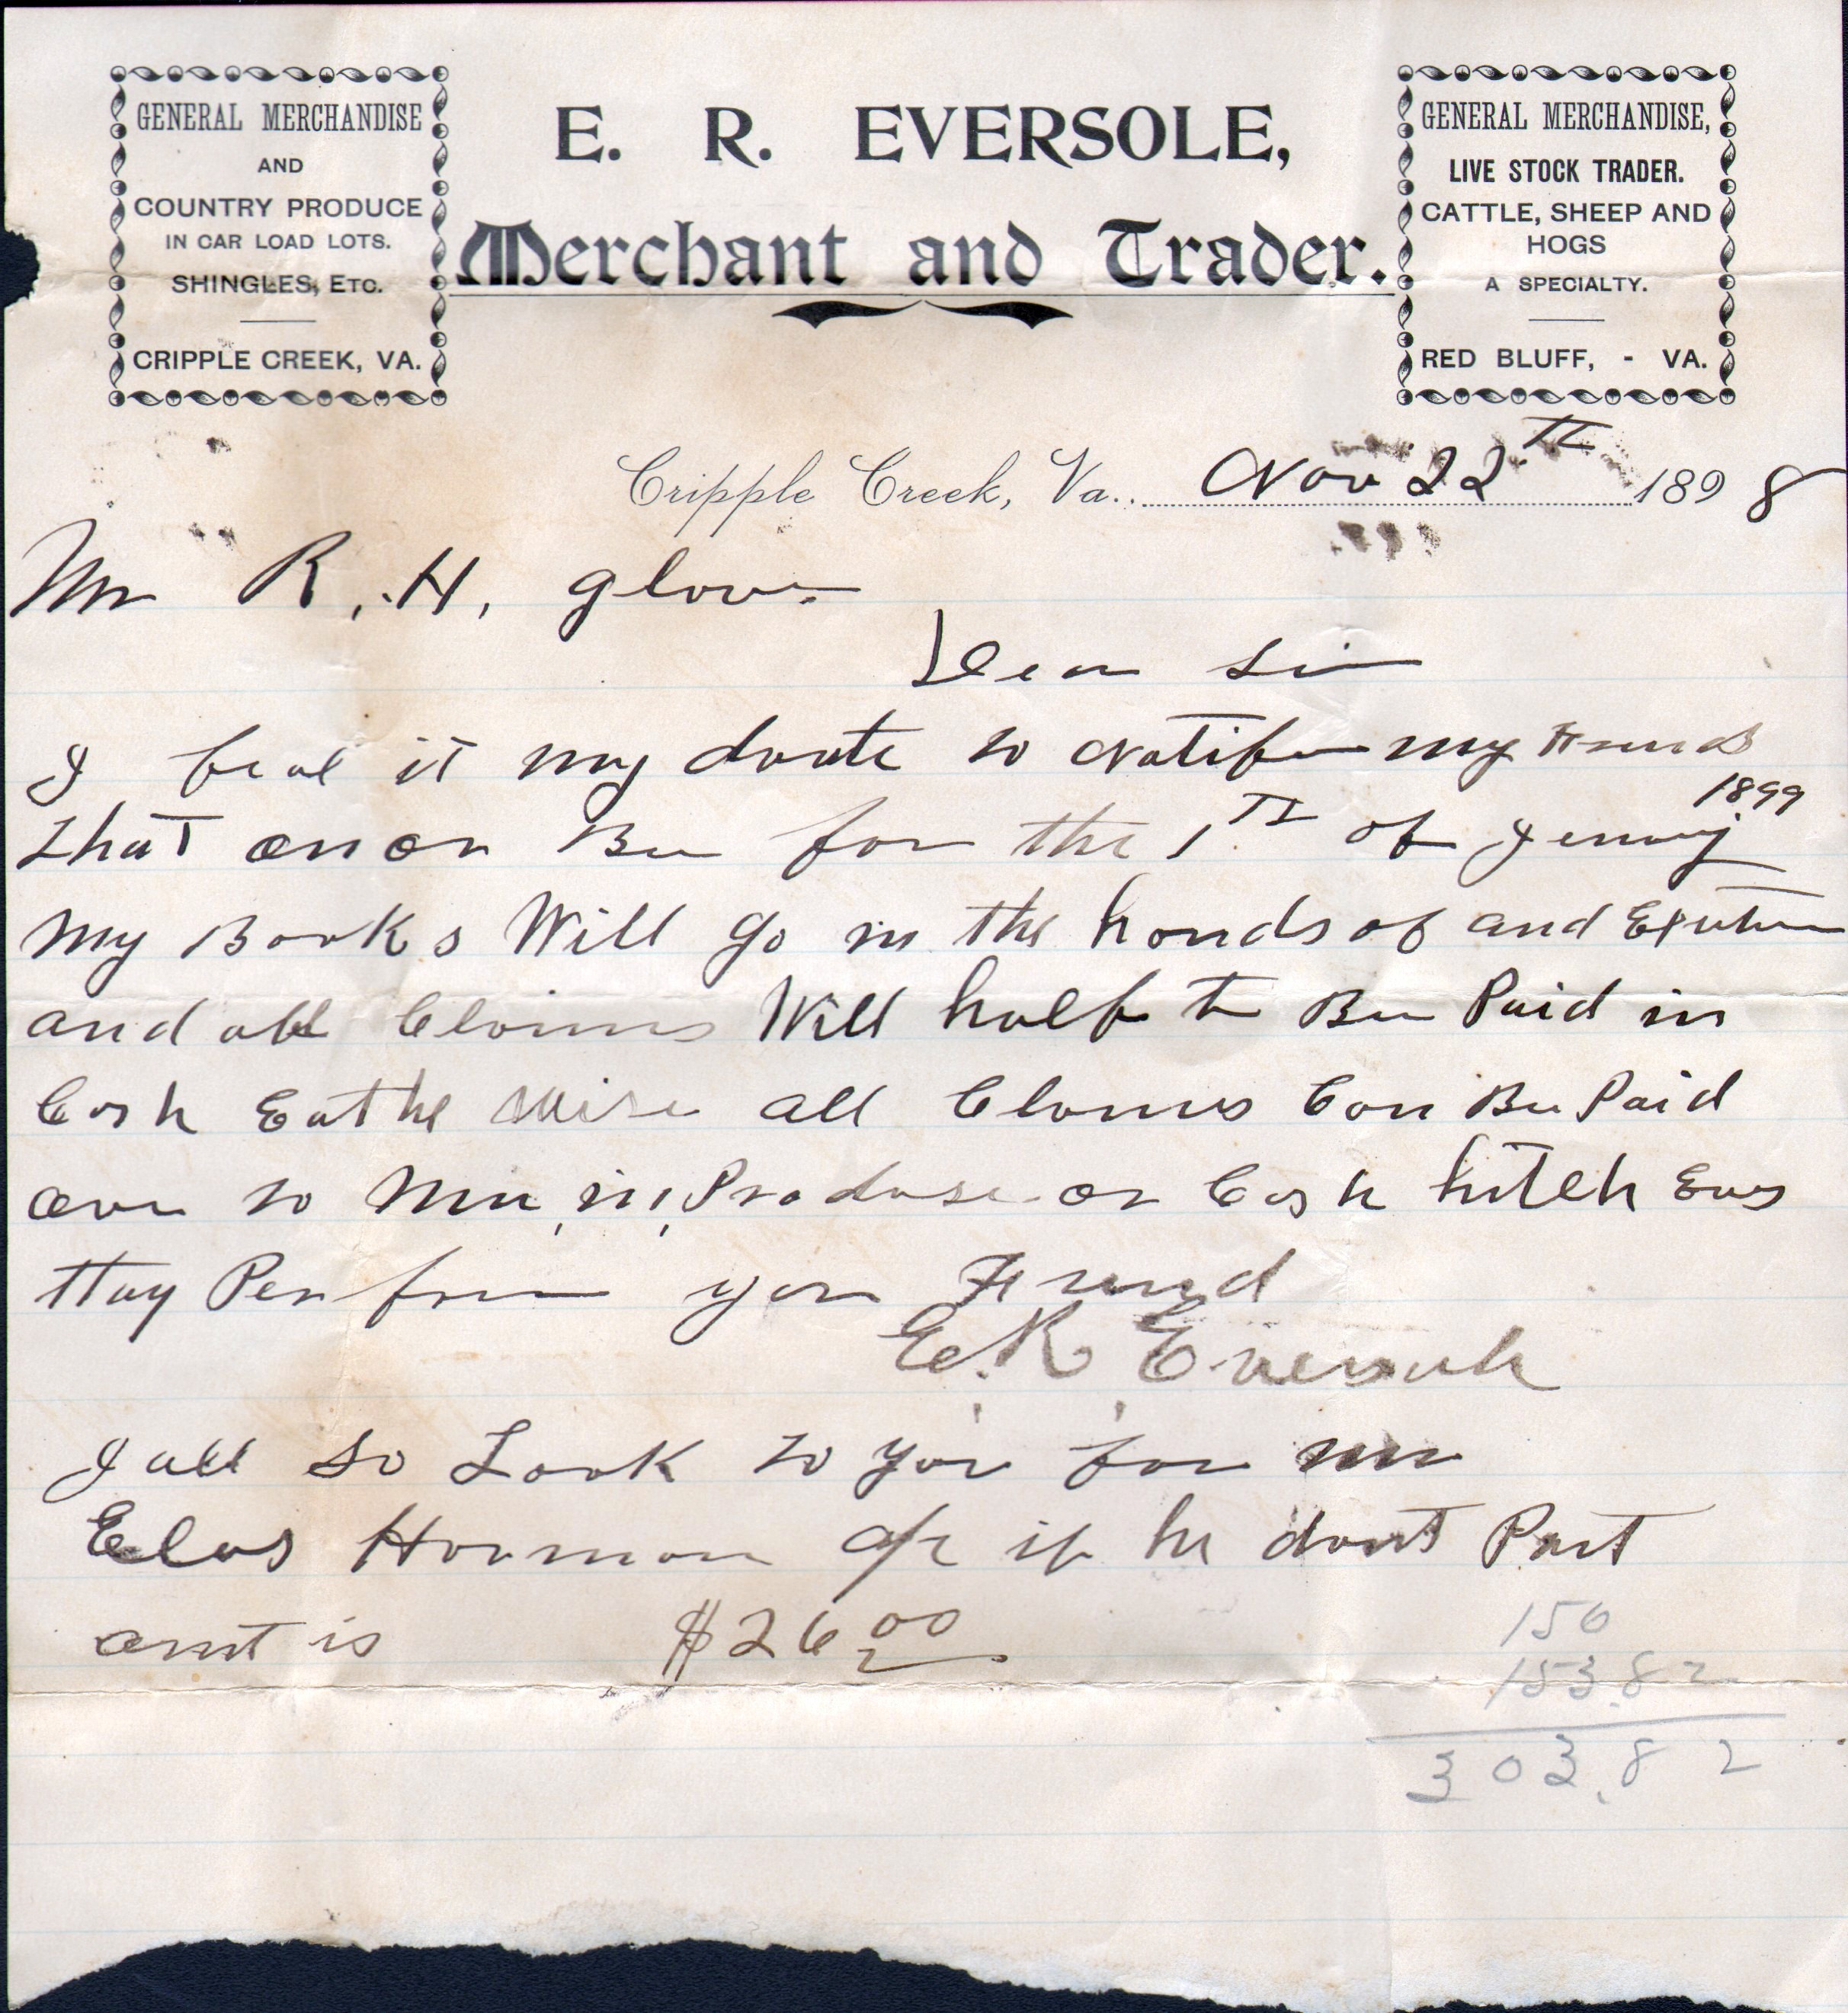 GENERAL MERCHANDISE
AND
COUNTRY PRODUCE
IN CAR LOAD LOTS.
SHINGLES, ETC.
CRIPPLE CREEK, VA.
E. R. EVERSOLE,
Merchant and Trader.
GENERAL MERCHANDISE,
LIVE STOCK TRADER.
CATTLE, SHEEP AND
HOGS
A SPECIALTY.
RED BLUFF, - VA.
Cripple Creek, Va.. Nov 22th 1898
Mr R. H. glover
Dear Sir
I feal it my to my
that on or Be for the 1th of 1899
My Books Will go in the hands of and
and all Claims Will half to Be Paid in
Cash all Claims Can Be Paid
over to Me, in, or Cash
from your
E. R. Eversole
I all so Look to you for Mr
a/c if he dont
amt is $26 00
150
153.82
303.82